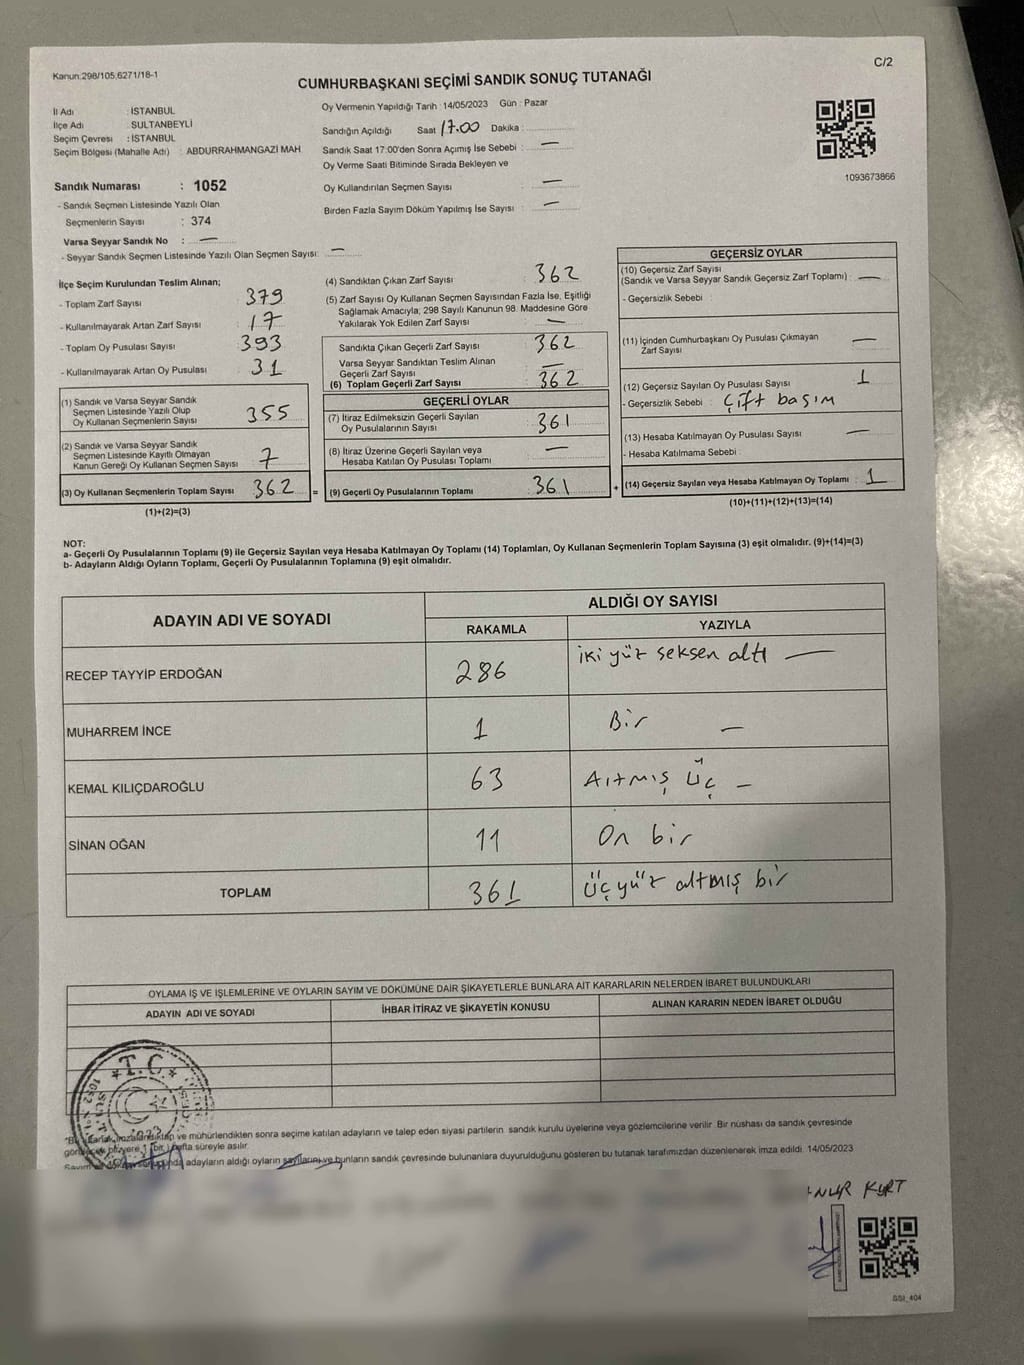 Kanun:298/105;6271/18-1
C/2
CUMHURBAŞKANI SEÇİMİ SANDIK SONUÇ TUTANAĞI
İl Adı : İSTANBUL
İlçe Adı : SULTANBEYLİ
Seçim Çevresi : İSTANBUL
Seçim Bölgesi (Mahalle Adı) : ABDURRAHMANGAZİ MAH.
Oy Vermenin Yapıldığı Tarih : 14/05/2023 Gün : Pazar
Sandığın Açıldığı Saat 17.00 Dakika :
Sandık Saat 17:00'den Sonra Açımış İse Sebebi : —
Oy Verme Saati Bitiminde Sırada Bekleyen ve
Oy Kullandırılan Seçmen Sayısı —
Birden Fazla Sayım Döküm Yapılmış İse Sayısı : —
1093673866
Sandık Numarası : 1052
- Sandık Seçmen Listesinde Yazılı Olan
Seçmenlerin Sayısı : 374
Varsa Seyyar Sandık No : —
- Seyyar Sandık Seçmen Listesinde Yazılı Olan Seçmen Sayısı: —
İlçe Seçim Kurulundan Teslim Alınan;
- Toplam Zarf Sayısı 379
- Kullanılmayarak Artan Zarf Sayısı : 17
- Toplam Oy Pusulası Sayısı : 393
- Kullanılmayarak Artan Oy Pusulası : 31
(1) Sandık ve Varsa Seyyar Sandık
Seçmen Listesinde Yazılı Olup
Oy Kullanan Seçmenlerin Sayısı 355
(2) Sandık ve Varsa Seyyar Sandık
Seçmen Listesinde Kayıtlı Olmayan
Kanun Gereği Oy Kullanan Seçmen Sayısı 7
(3) Oy Kullanan Seçmenlerin Toplam Sayısı 362 =
(1)+(2)=(3)
(4) Sandıktan Çıkan Zarf Sayısı 362
(5) Zarf Sayısı Oy Kullanan Seçmen Sayısından Fazla İse, Eşitliği
Sağlamak Amacıyla; 298 Sayılı Kanunun 98. Maddesine Göre
Yakılarak Yok Edilen Zarf Sayısı —
Sandıkta Çıkan Geçerli Zarf Sayısı 362
Varsa Seyyar Sandıktan Teslim Alınan
Geçerli Zarf Sayısı —
(6) Toplam Geçerli Zarf Sayısı 362
GEÇERLİ OYLAR
(7) İtiraz Edilmeksizin Geçerli Sayılan
Oy Pusulalarının Sayısı 361
(8) İtiraz Üzerine Geçerli Sayılan veya
Hesaba Katılan Oy Pusulası Toplamı —
(9) Geçerli Oy Pusulalarının Toplamı 361 +
GEÇERSİZ OYLAR
(10) Geçersiz Zarf Sayısı
(Sandık ve Varsa Seyyar Sandık Geçersiz Zarf Toplamı) : —
- Geçersizlik Sebebi :
(11) İçinden Cumhurbaşkanı Oy Pusulası Çıkmayan
Zarf Sayısı —
(12) Geçersiz Sayılan Oy Pusulası Sayısı 1
- Geçersizlik Sebebi : Çift basım
(13) Hesaba Katılmayan Oy Pusulası Sayısı —
- Hesaba Katılmama Sebebi :
(14) Geçersiz Sayılan veya Hesaba Katılmayan Oy Toplamı : 1
(10)+(11)+(12)+(13)=(14)
NOT:
a- Geçerli Oy Pusulalarının Toplamı (9) ile Geçersiz Sayılan veya Hesaba Katılmayan Oy Toplamı (14) Toplamları, Oy Kullanan Seçmenlerin Toplam Sayısına (3) eşit olmalıdır. (9)+(14)=(3)
b- Adayların Aldığı Oyların Toplamı, Geçerli Oy Pusulalarının Toplamına (9) eşit olmalıdır.
ADAYIN ADI VE SOYADI ALDIĞI OY SAYISI
RAKAMLA YAZIYLA
RECEP TAYYİP ERDOĞAN 286 iki yüz seksen altı —
MUHARREM İNCE 1 Bir —
KEMAL KILIÇDAROĞLU 63 Altmış üç —
SİNAN OĞAN 11 On bir
TOPLAM 361 üç yüz altmış bir
OYLAMA İŞ VE İŞLEMLERİNE VE OYLARIN SAYIM VE DÖKÜMÜNE DAİR ŞİKAYETLERLE BUNLARA AİT KARARLARIN NELERDEN İBARET BULUNDUKLARI
ADAYIN ADI VE SOYADI İHBAR İTİRAZ VE ŞİKAYETİN KONUSU ALINAN KARARIN NEDEN İBARET OLDUĞU
T.C.
imzalandıktan ve mühürlendikten sonra seçime katılan adayların ve talep eden siyasi partilerin sandık kurulu üyelerine veya gözlemcilerine verilir. Bir nüshası da sandık çevresinde
1 (bir) hafta süreyle asılır.
adayların aldığı oyların sayılarını ve bunların sandık çevresinde bulunanlara duyurulduğunu gösteren bu tutanak tarafımızdan düzenlenerek imza edildi. 14/05/2023
KURT